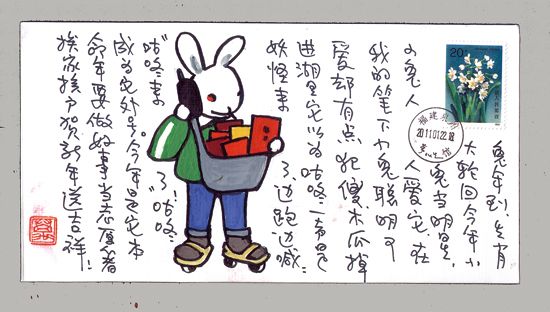 兔年到,生肖
大轮回今年小
兔当明星,
小兔人人爱它,在
我的笔下小兔聪明可
爱却有点犯傻.木瓜掉
进湖里它以为咕咚一声是
妖怪来了,边跑边喊:
咕咚来了!"咕咚"
成为它外号.今年是它本
命年要做好事当志愿者
挨家挨户贺新年送吉祥!
20分
福建泉州
2011.01.22.18